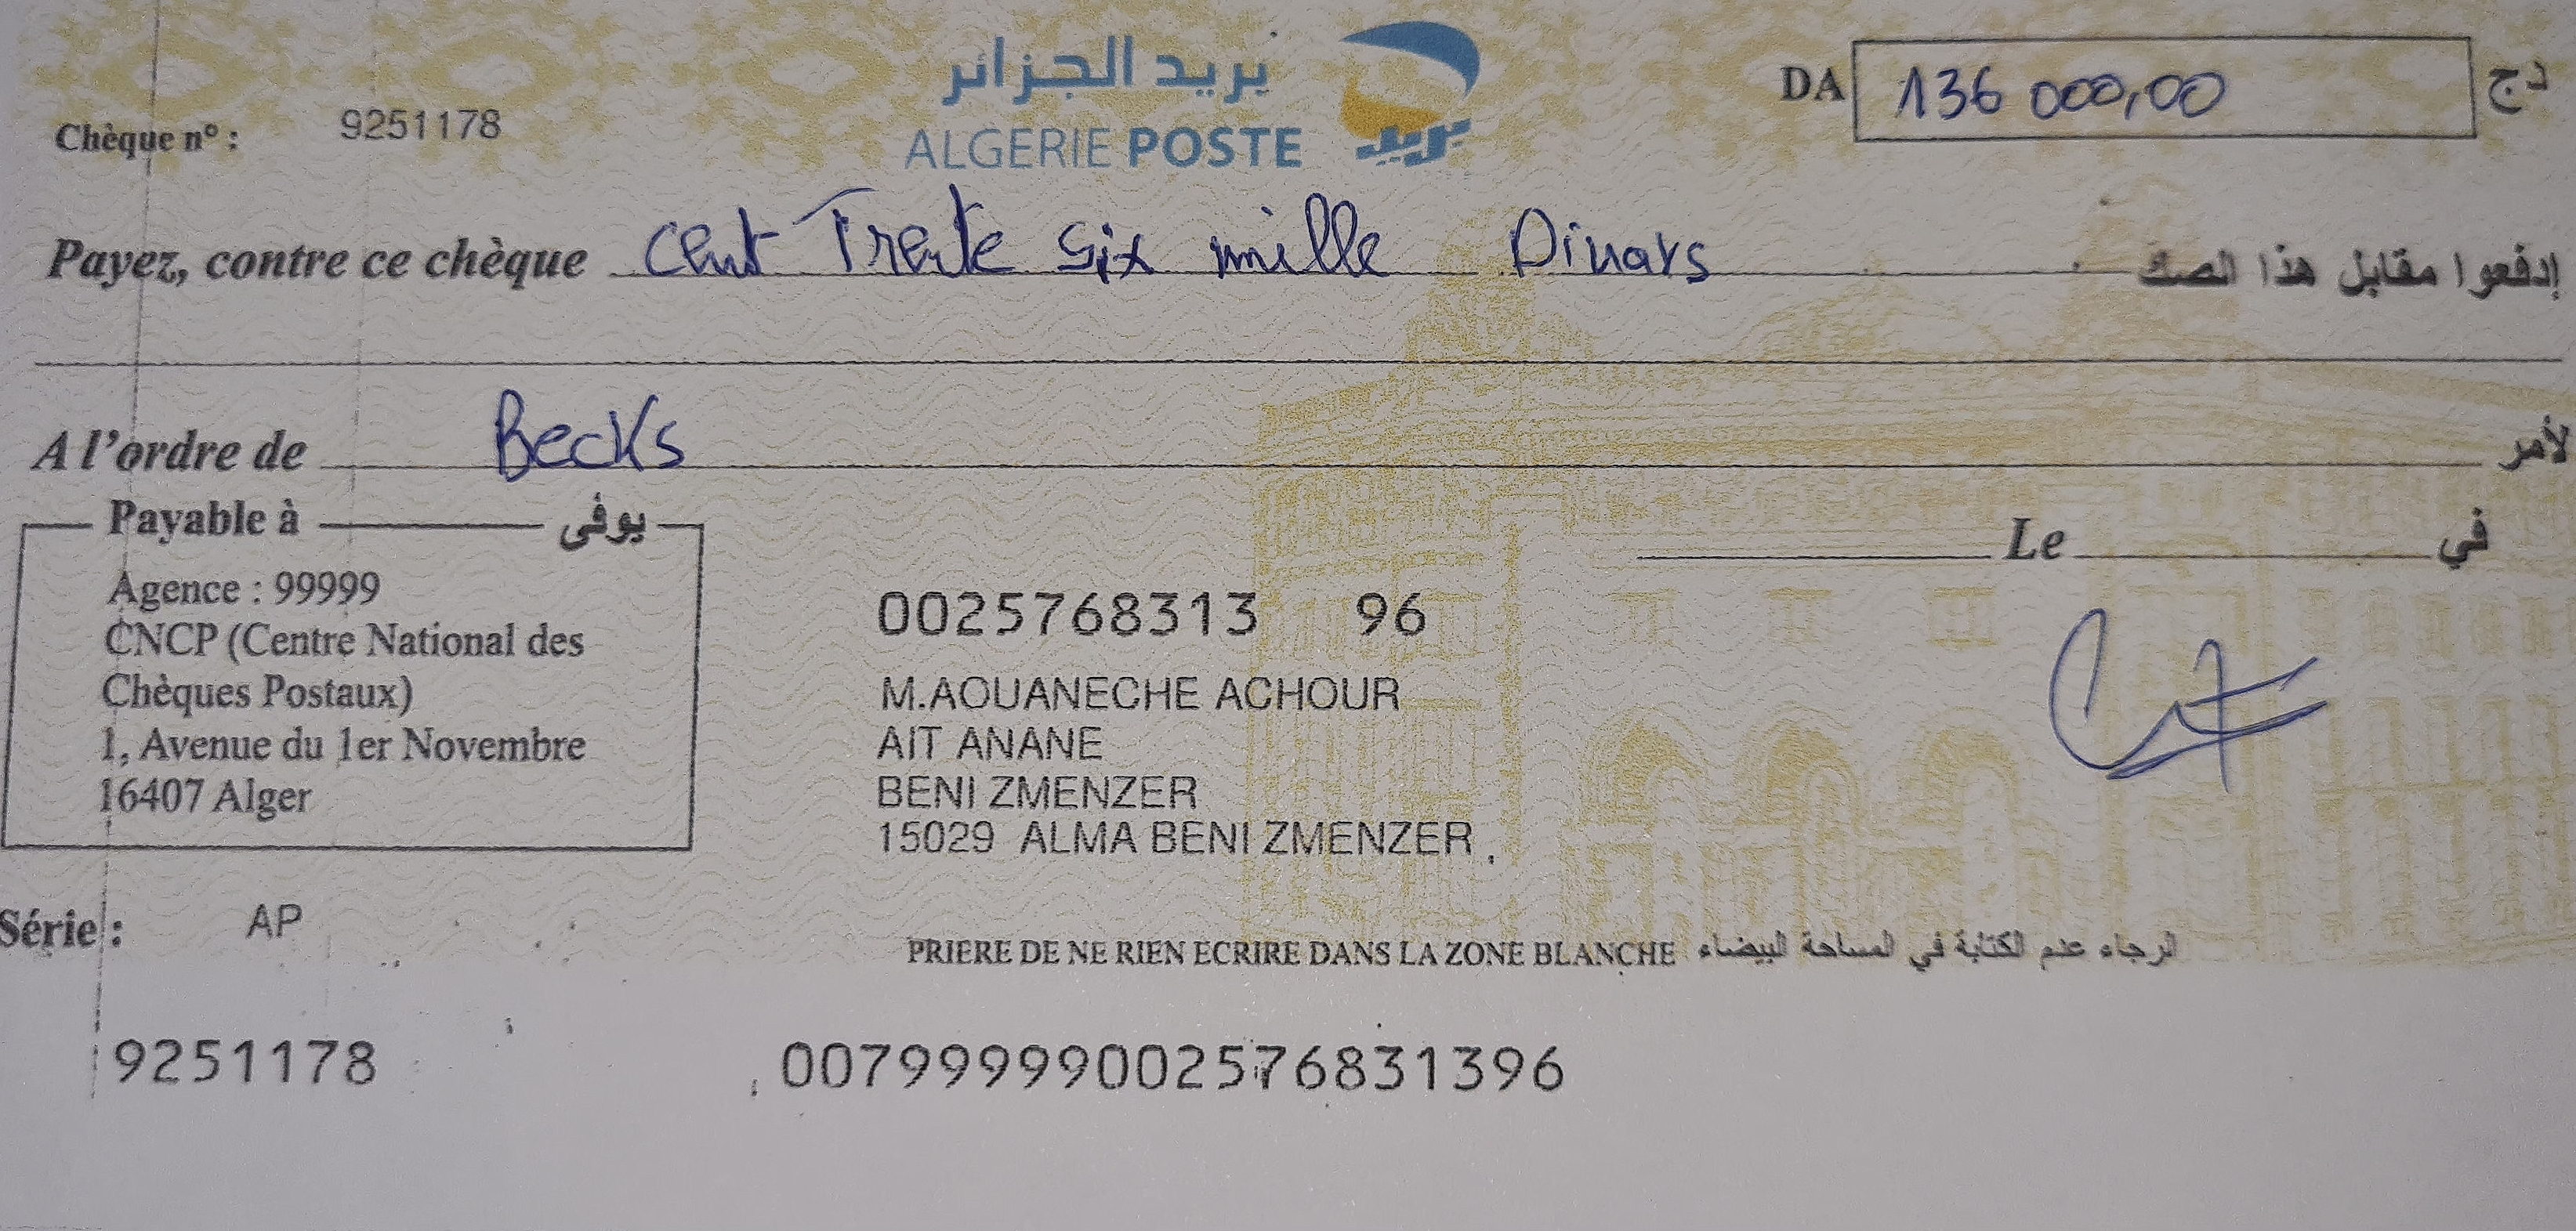 بريد الجزائر
ALGERIE POSTE
بريد
Chèque n° : 9251178
DA 136 000,00 دج
Payez, contre ce chèque Cent Trente Six mille Dinars إدفعوا مقابل هذا الصك
A l'ordre de Becks لأمر
Payable à يوفى
Le في
Agence : 99999
CNCP (Centre National des
Chèques Postaux)
1, Avenue du 1er Novembre
16407 Alger
0025768313 96
M.AOUANECHE ACHOUR
AIT ANANE
BENI ZMENZER
15029 ALMA BENI ZMENZER
Série : AP
PRIERE DE NE RIEN ECRIRE DANS LA ZONE BLANCHE الرجاء عدم الكتابة في المساحة البيضاء
9251178 00799999002576831396